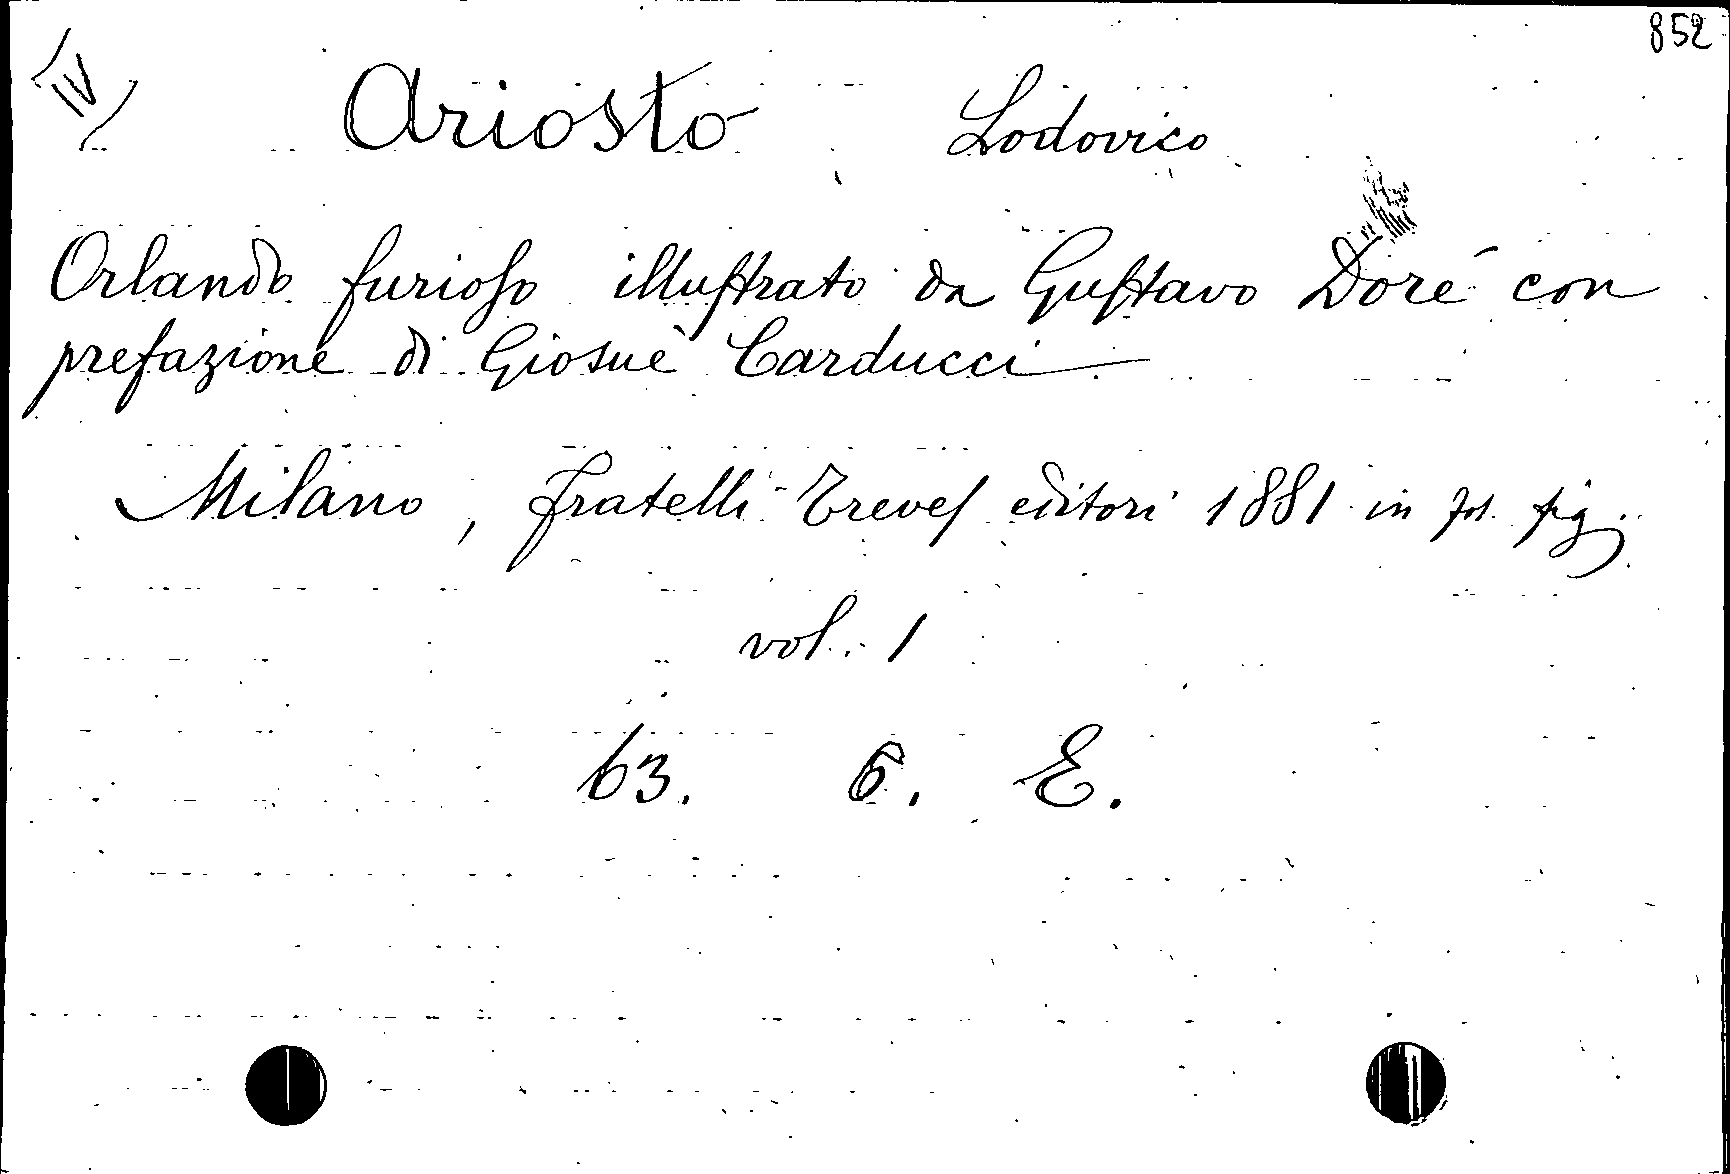 852
IV
Ariosto Lodovico
Orlando furioso illustrato da Gustavo Doré con
prefazione di Giosuè Carducci
Milano, Fratelli Treves editori 1881 in fol. fig.
vol. 1
63. 6. E.